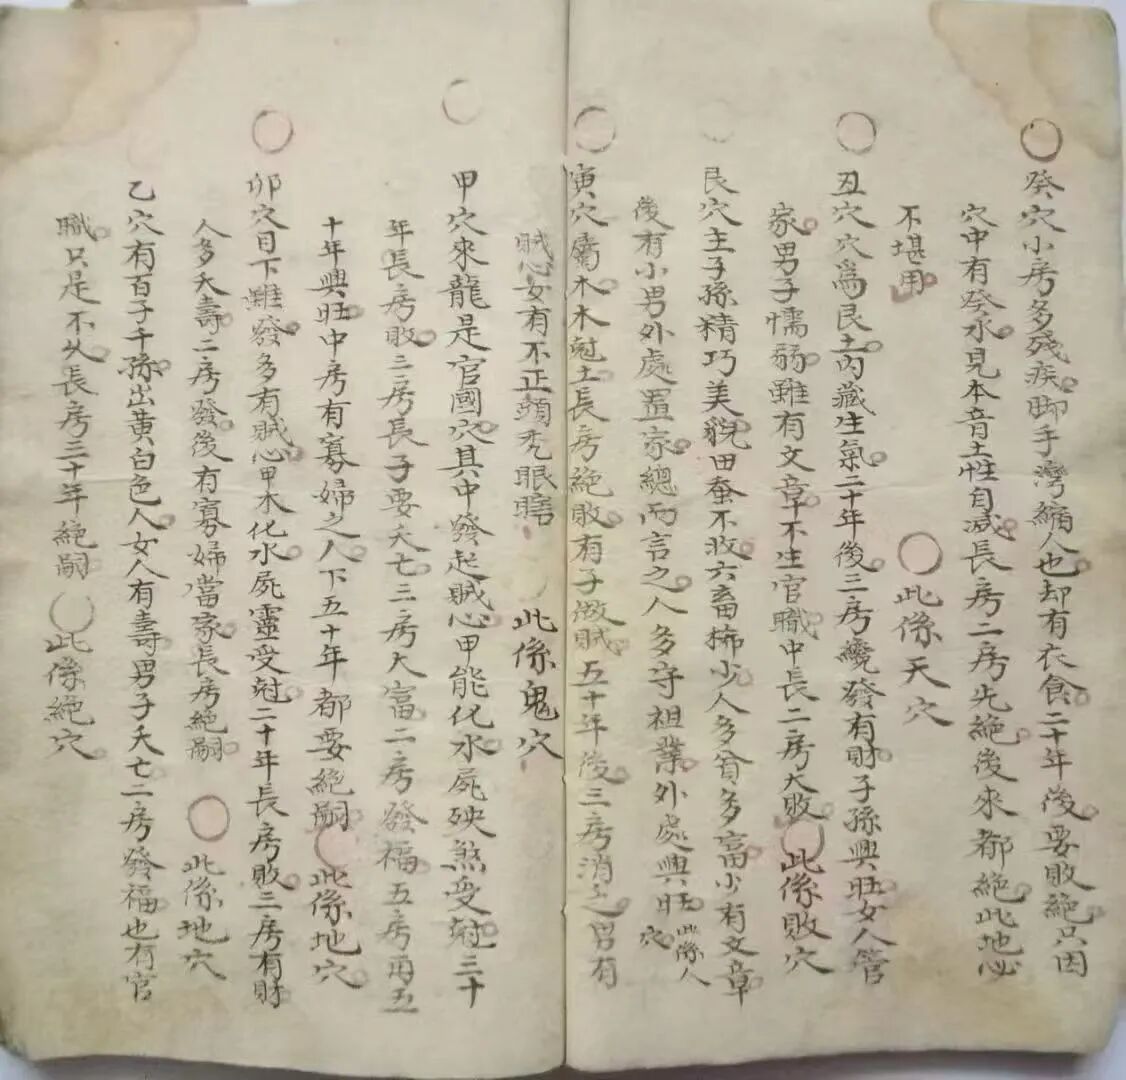 癸穴小房多殘疾脚手灣縮人也却有衣食二十年後要敗絕只因
穴中有癸水見本音土性自减長房二房先絕後來都絕此地必
不堪用 ○此係天穴
丑穴穴爲艮土内藏生氣二十年後三房纔發有財子孫興旺女人管
家男子懦弱雖有文章不生官職中長二房大敗○此係敗穴
艮穴主子孫精巧美貌田蚕不收六畜稀少人多貧多富少有文章
後有小男外處置家總而言之人多守祖業外處興旺此係人穴
寅穴屬木木尅土長房絕敗有子做賊五十年後三房消之男有
賊心女有不正頭禿眼瞎 ○此係鬼穴
甲穴來龍是官國穴其中發起賊心甲能化水屍殃煞受尅三十
年長房敗三房長子要夭亡三房大富二房發福五房再五
十年興旺中房有寡婦之人下五十年都要絕嗣○此係地穴
卯穴目下雖發多有賊心甲木化水屍靈受尅二十年長房敗三房有財
人多夭壽二房發後有寡婦當家長房絕嗣 ○此係地穴
乙穴有百子千孫出黄白色人女人有壽男子夭亡二房發福也有官
職只是不久長房三十年絕嗣○此係絕穴